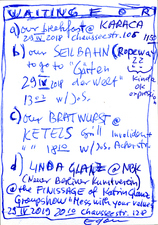 WAITING FOR
a) our breakfast @ KARACA
29 IV 2018 Chausseestr. 106 1130
b) our SEILBAHN (Ropeway)
to go to "Gärten
29 IV 2018 der Welt"
13 w/ J.S.
c) our BRATWURST @
KETELS Grill Invaliden
" " 1810 w/ J.S. Ackerstr.
d) LINDA GLANZ @ NBK
(Neuer Berliner Kunstverein)
@ the FINISSAGE of Katrin Glanz
Groupshow "Mess with your values"
29 IV 2019 2010 Chausseestr. 128